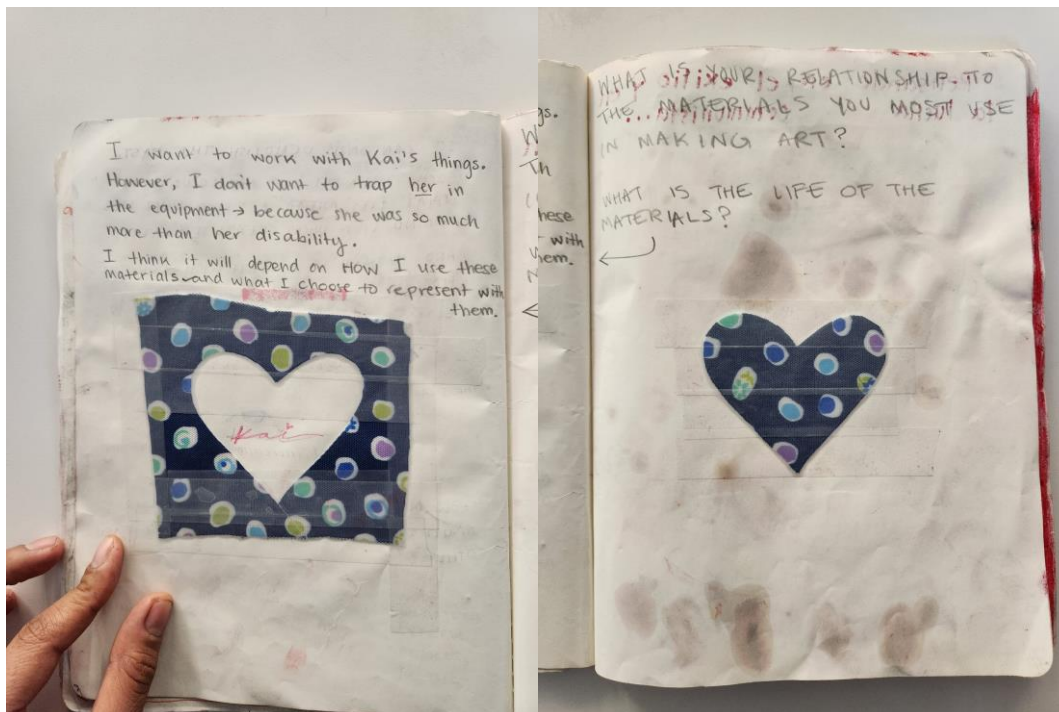 I want to work with Kai's things.
However, I don't want to trap her in
the equipment → because she was so much
more than her disability.
I think it will depend on HOW I use these
materials and what I choose to represent with
them.
Kai
WHAT IS YOUR RELATIONSHIP TO
THE MATERIALS YOU MOST USE
IN MAKING ART?
WHAT IS THE LIFE OF THE
MATERIALS?
gs.
hese
with
hem.
Th